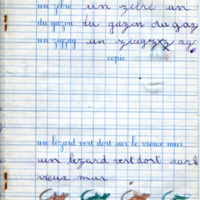 un zèbre un zèbre un
du gazon du gazon du gaz
un zigzag un zigzag zig
copie
un lezard vert dort sur le vieux mur
un lezard vert dort sur l
vieux mur